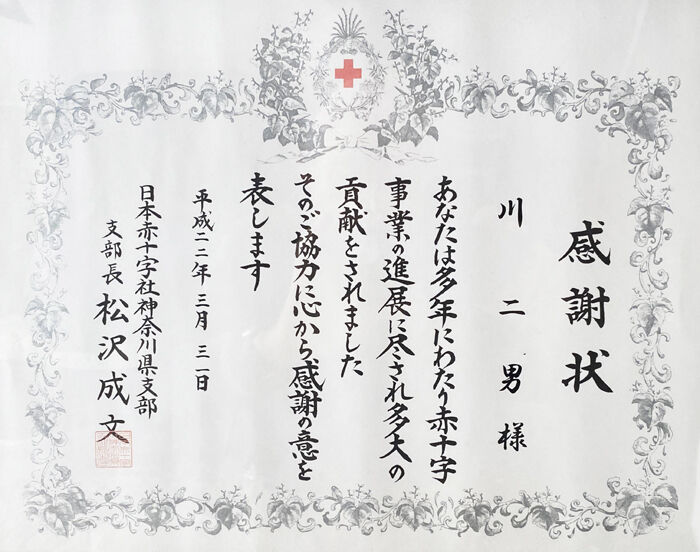 感謝状
川二男様
あなたは多年にわたり赤十字
事業の進展に尽され多大の
貢献をされました
そのご協力に心から感謝の意を
表します
平成二二年三月三一日
日本赤十字社神奈川県支部
支部長 松沢成文